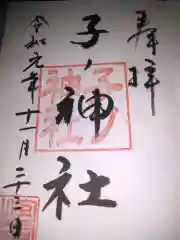 奉拝
子ノ神社
子ノ神社
令和元年十一月二十三日